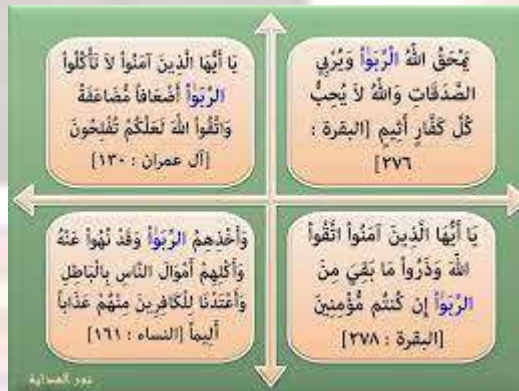 يَمْحَقُ اللّهُ الْرِّبَوٰاْ وَيُرْبِي
الصَّدَقَاتِ وَاللّهُ لاَ يُحِبُّ
كُلَّ كَفَّارٍ أَثِيمٍ [البقرة :
٢٧٦]
يَا أَيُّهَا الَّذِينَ آمَنُواْ لاَ تَأْكُلُواْ
الرِّبَوٰاْ أَضْعَافاً مُّضَاعَفَةً
وَاتَّقُواْ اللّهَ لَعَلَّكُمْ تُفْلِحُونَ
[آل عمران : ١٣٠]
يَا أَيُّهَا الَّذِينَ آمَنُواْ اتَّقُواْ
اللّهَ وَذَرُواْ مَا بَقِيَ مِنَ
الرِّبَوٰاْ إِن كُنتُم مُّؤْمِنِينَ
[البقرة : ٢٧٨]
وَأَخْذِهِمُ الرِّبَوٰاْ وَقَدْ نُهُواْ عَنْهُ
وَأَكْلِهِمْ أَمْوَالَ النَّاسِ بِالْبَاطِلِ
وَأَعْتَدْنَا لِلْكَافِرِينَ مِنْهُمْ عَذَاباً
أَلِيماً [النساء : ١٦١]
نور الهداية